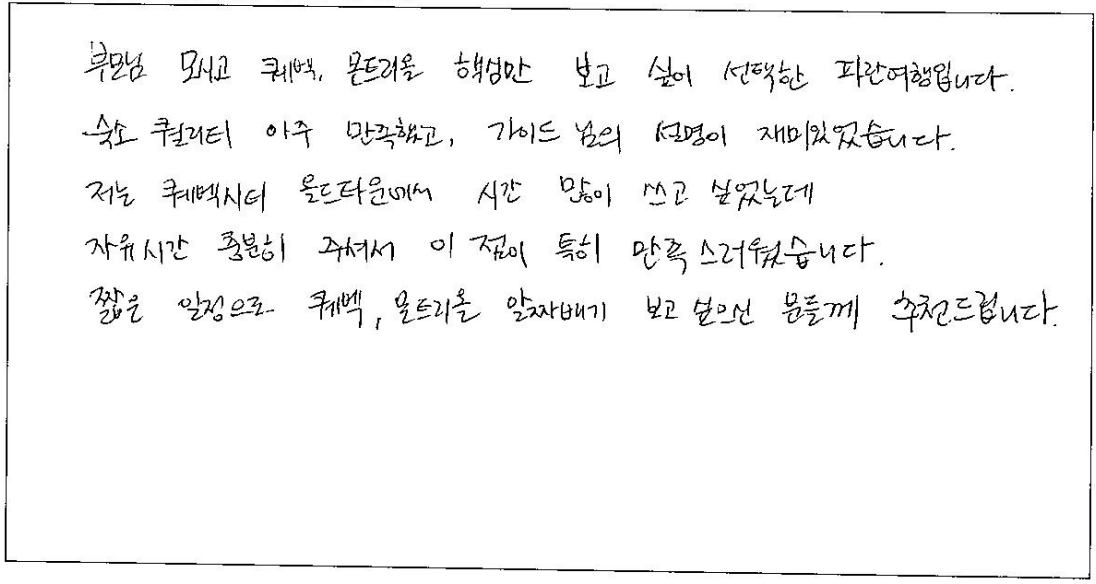 부모님 모시고 퀘벡, 몬트리올 핵심만 보고 싶어 선택한 파란여행입니다.
숙소 퀄리티 아주 만족했고, 가이드 님의 설명이 재미있었습니다.
저는 퀘벡시티 올드타운에서 시간 많이 쓰고 싶었는데
자유시간 충분히 주셔서 이 점이 특히 만족스러웠습니다.
짧은 일정으로 퀘벡, 몬트리올 알짜배기 보고 싶으신 분들께 추천드립니다.